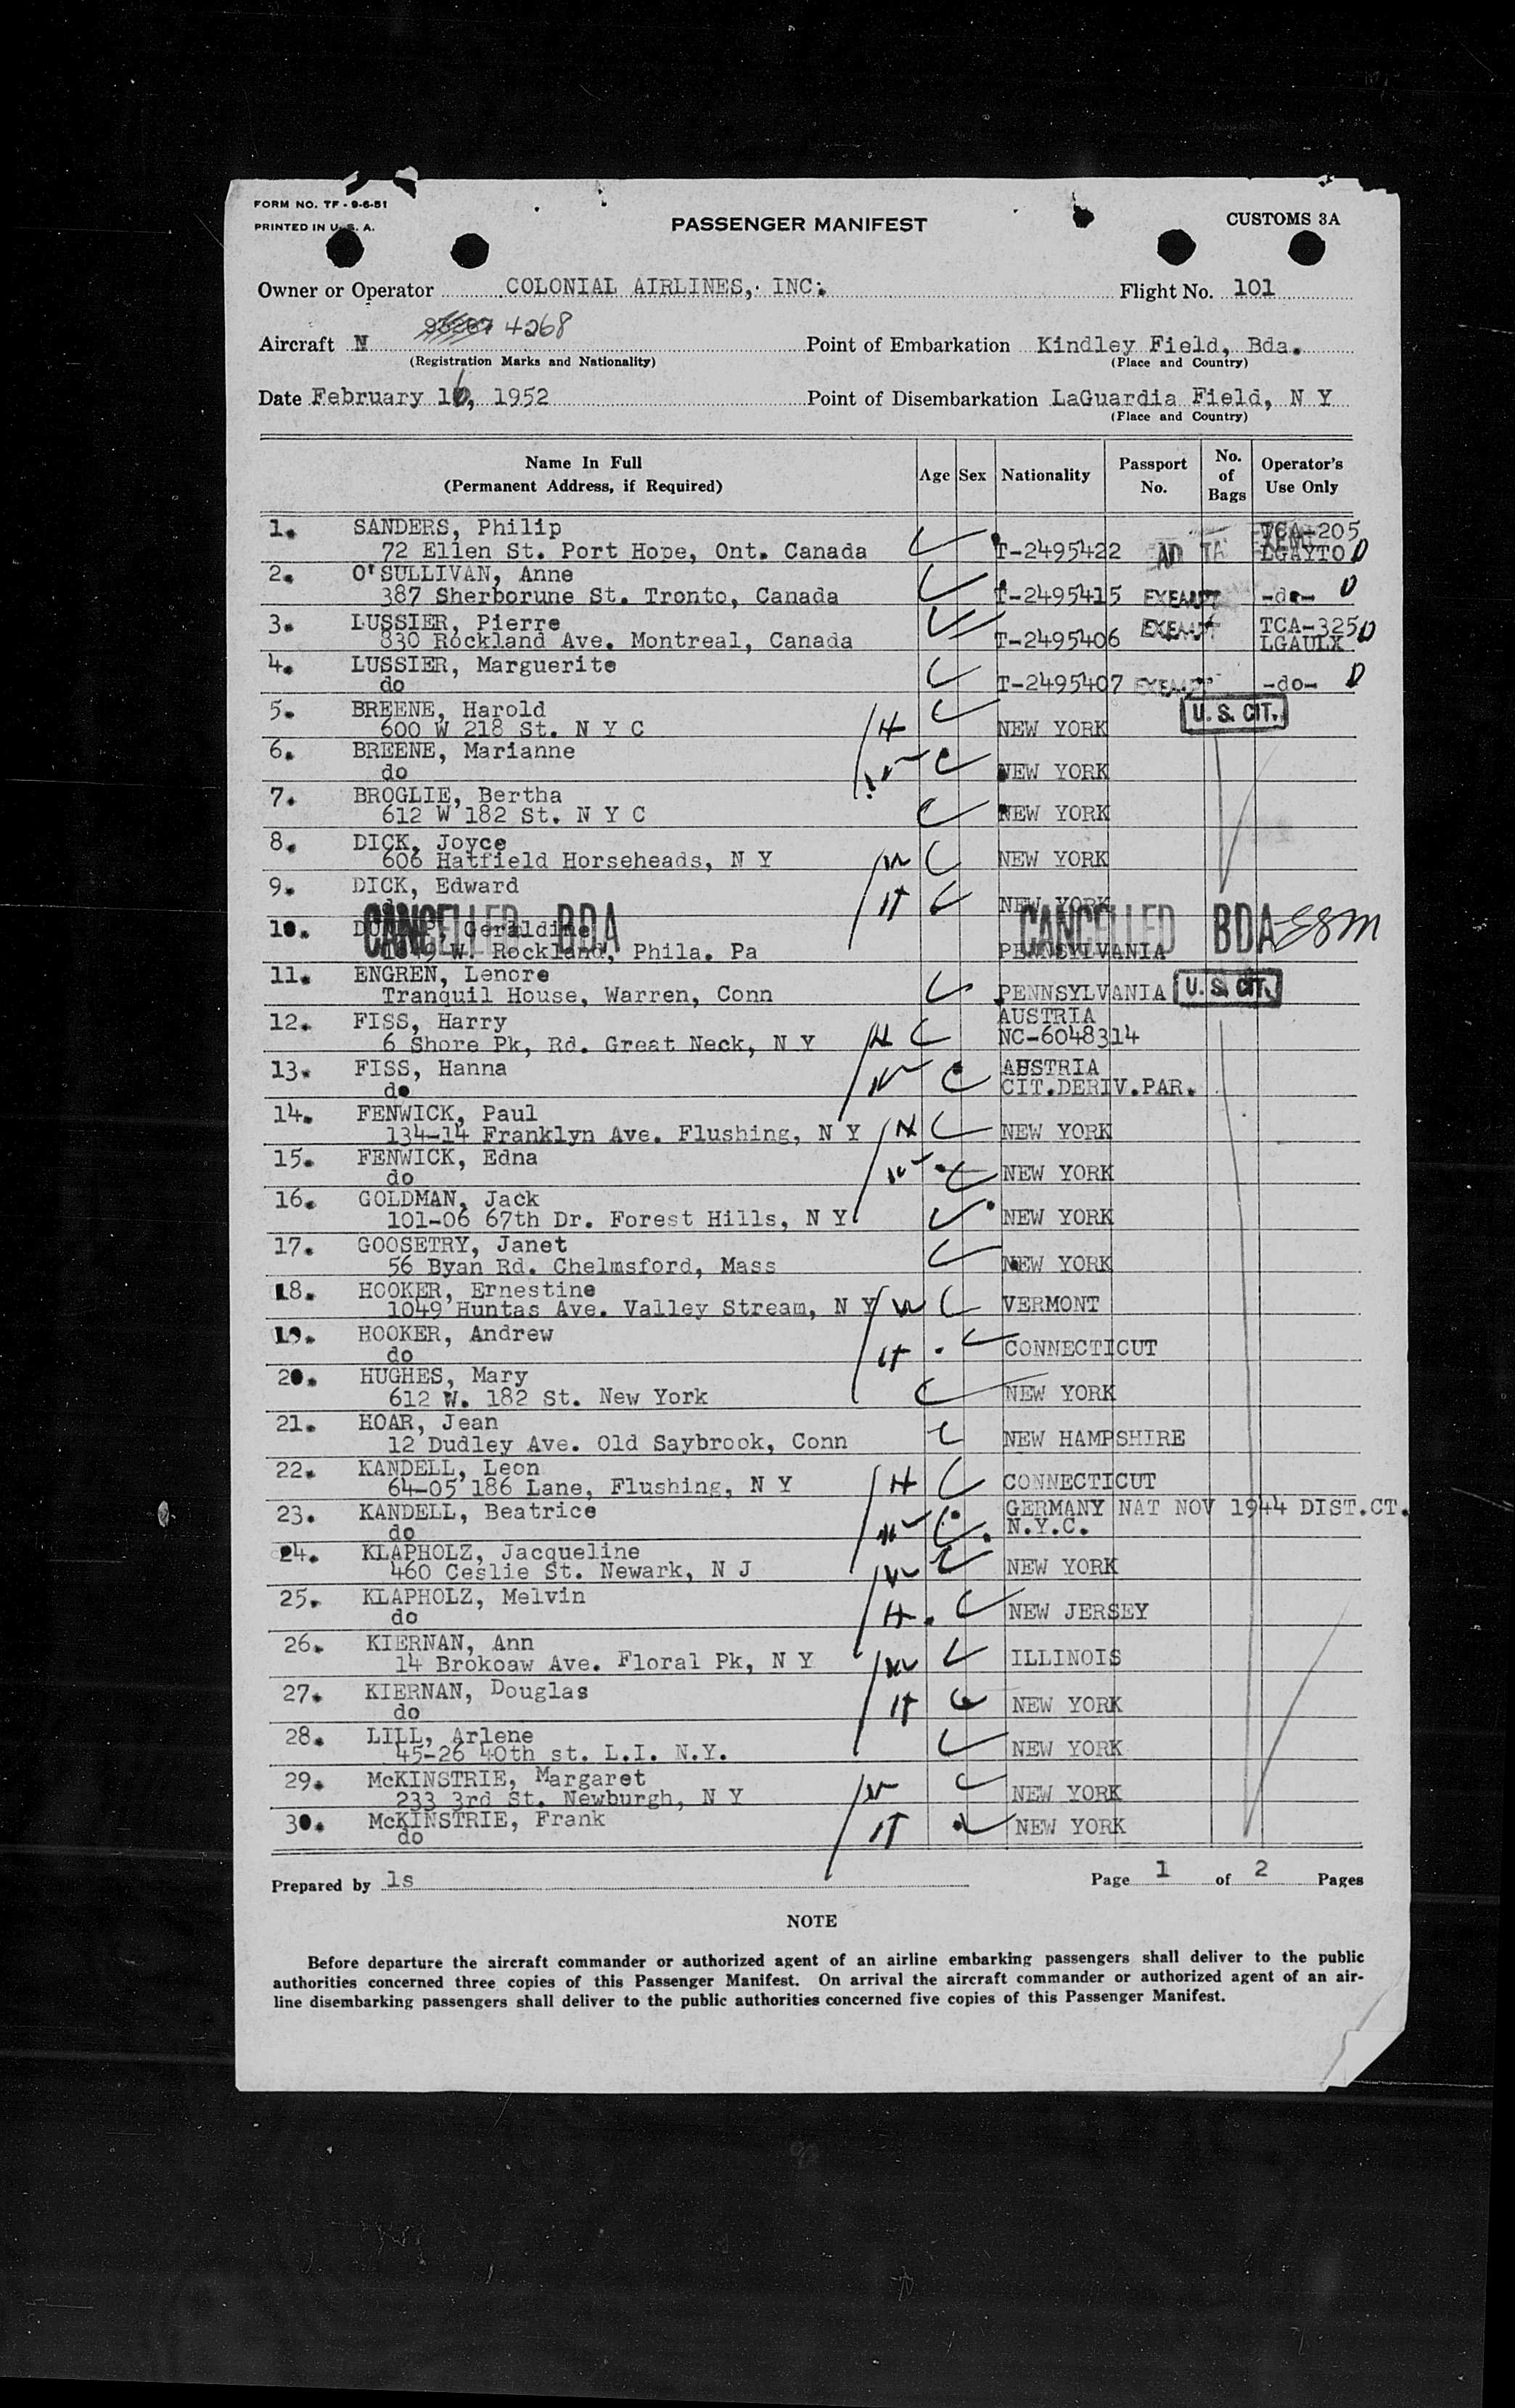 FORM NO. TF - 9-6-51
PRINTED IN U. S. A.
PASSENGER MANIFEST
CUSTOMS 3A
Owner or Operator COLONIAL AIRLINES, INC. Flight No. 101
Aircraft N 4268 Point of Embarkation Kindley Field, Bda.
(Registration Marks and Nationality) (Place and Country)
Date February 16, 1952 Point of Disembarkation LaGuardia Field, N Y
(Place and Country)
Name In Full (Permanent Address, if Required) Age Sex Nationality Passport No. No. of Bags Operator's Use Only
1. SANDERS, Philip TCA-205
72 Ellen St. Port Hope, Ont. Canada T-2495422 LGAYTO D
2. O'SULLIVAN, Anne
387 Sherborune St. Tronto, Canada T-2495415 EXEMPT -do- D
3. LUSSIER, Pierre EXEMPT TCA-325 D
830 Rockland Ave. Montreal, Canada T-2495406 LGAULX
4. LUSSIER, Marguerite
do T-2495407 EXEMPT -do- D
5. BREENE, Harold U. S. CIT.
600 W 218 St. N Y C H NEW YORK
6. BREENE, Marianne
do W NEW YORK
7. BROGLIE, Bertha
612 W 182 St. N Y C NEW YORK
8. DICK, Joyce
606 Hatfield Horseheads, N Y W NEW YORK
9. DICK, Edward
H NEW YORK
CANCELLED BDA CANCELLED BDA ESM
10. Geraldine
W. Rockland, Phila. Pa PENNSYLVANIA
11. ENGREN, Lenore
Tranquil House, Warren, Conn PENNSYLVANIA U. S. CIT.
12. FISS, Harry AUSTRIA
6 Shore Pk, Rd. Great Neck, N Y H NC-6048314
13. FISS, Hanna AUSTRIA
do W CIT.DERIV.PAR.
14. FENWICK, Paul
134-14 Franklyn Ave. Flushing, N Y H NEW YORK
15. FENWICK, Edna
do W NEW YORK
16. GOLDMAN, Jack
101-06 67th Dr. Forest Hills, N Y NEW YORK
17. GOOSETRY, Janet
56 Byan Rd. Chelmsford, Mass NEW YORK
18. HOOKER, Ernestine
1049 Huntas Ave. Valley Stream, N Y W VERMONT
19. HOOKER, Andrew
do H CONNECTICUT
20. HUGHES, Mary
612 W. 182 St. New York NEW YORK
21. HOAR, Jean
12 Dudley Ave. Old Saybrook, Conn NEW HAMPSHIRE
22. KANDELL, Leon
64-05 186 Lane, Flushing, N Y H CONNECTICUT
23. KANDELL, Beatrice GERMANY NAT NOV 1944 DIST.CT.
do W N.Y.C.
24. KLAPHOLZ, Jacqueline
460 Ceslie St. Newark, N J W NEW YORK
25. KLAPHOLZ, Melvin
do H NEW JERSEY
26. KIERNAN, Ann
14 Brokoaw Ave. Floral Pk, N Y W ILLINOIS
27. KIERNAN, Douglas
do H NEW YORK
28. LILL, Arlene
45-26 40th st. L.I. N.Y. NEW YORK
29. McKINSTRIE, Margaret
233 3rd St. Newburgh, N Y W NEW YORK
30. McKINSTRIE, Frank
do H NEW YORK
Prepared by ls Page 1 of 2 Pages
NOTE
Before departure the aircraft commander or authorized agent of an airline embarking passengers shall deliver to the public
authorities concerned three copies of this Passenger Manifest. On arrival the aircraft commander or authorized agent of an air-
line disembarking passengers shall deliver to the public authorities concerned five copies of this Passenger Manifest.